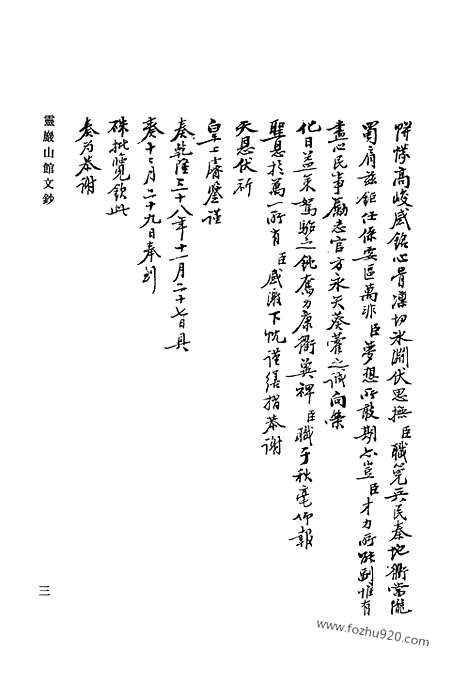 隊高峻感銘心骨凜切冰淵伏思撫臣職兼兵民秦地衝當隴
蜀肩茲鉅任保安區萬非臣夢想所敢期亦豈臣才力所能副惟有
盡心民事勵志官方永矢葵藿之誠向集
化日益策駑駘之鈍奮力康衢冀裨臣職于秋毫仰報
聖恩於萬一所有臣感激下忱謹繕摺恭謝
天恩伏祈
皇上睿鑒謹
奏乾隆三十八年十一月二十七日具
奏十二月二十九日奉到
硃批覽欽此
奏為恭謝
靈巖山館文鈔
三
www.fozhu920.com